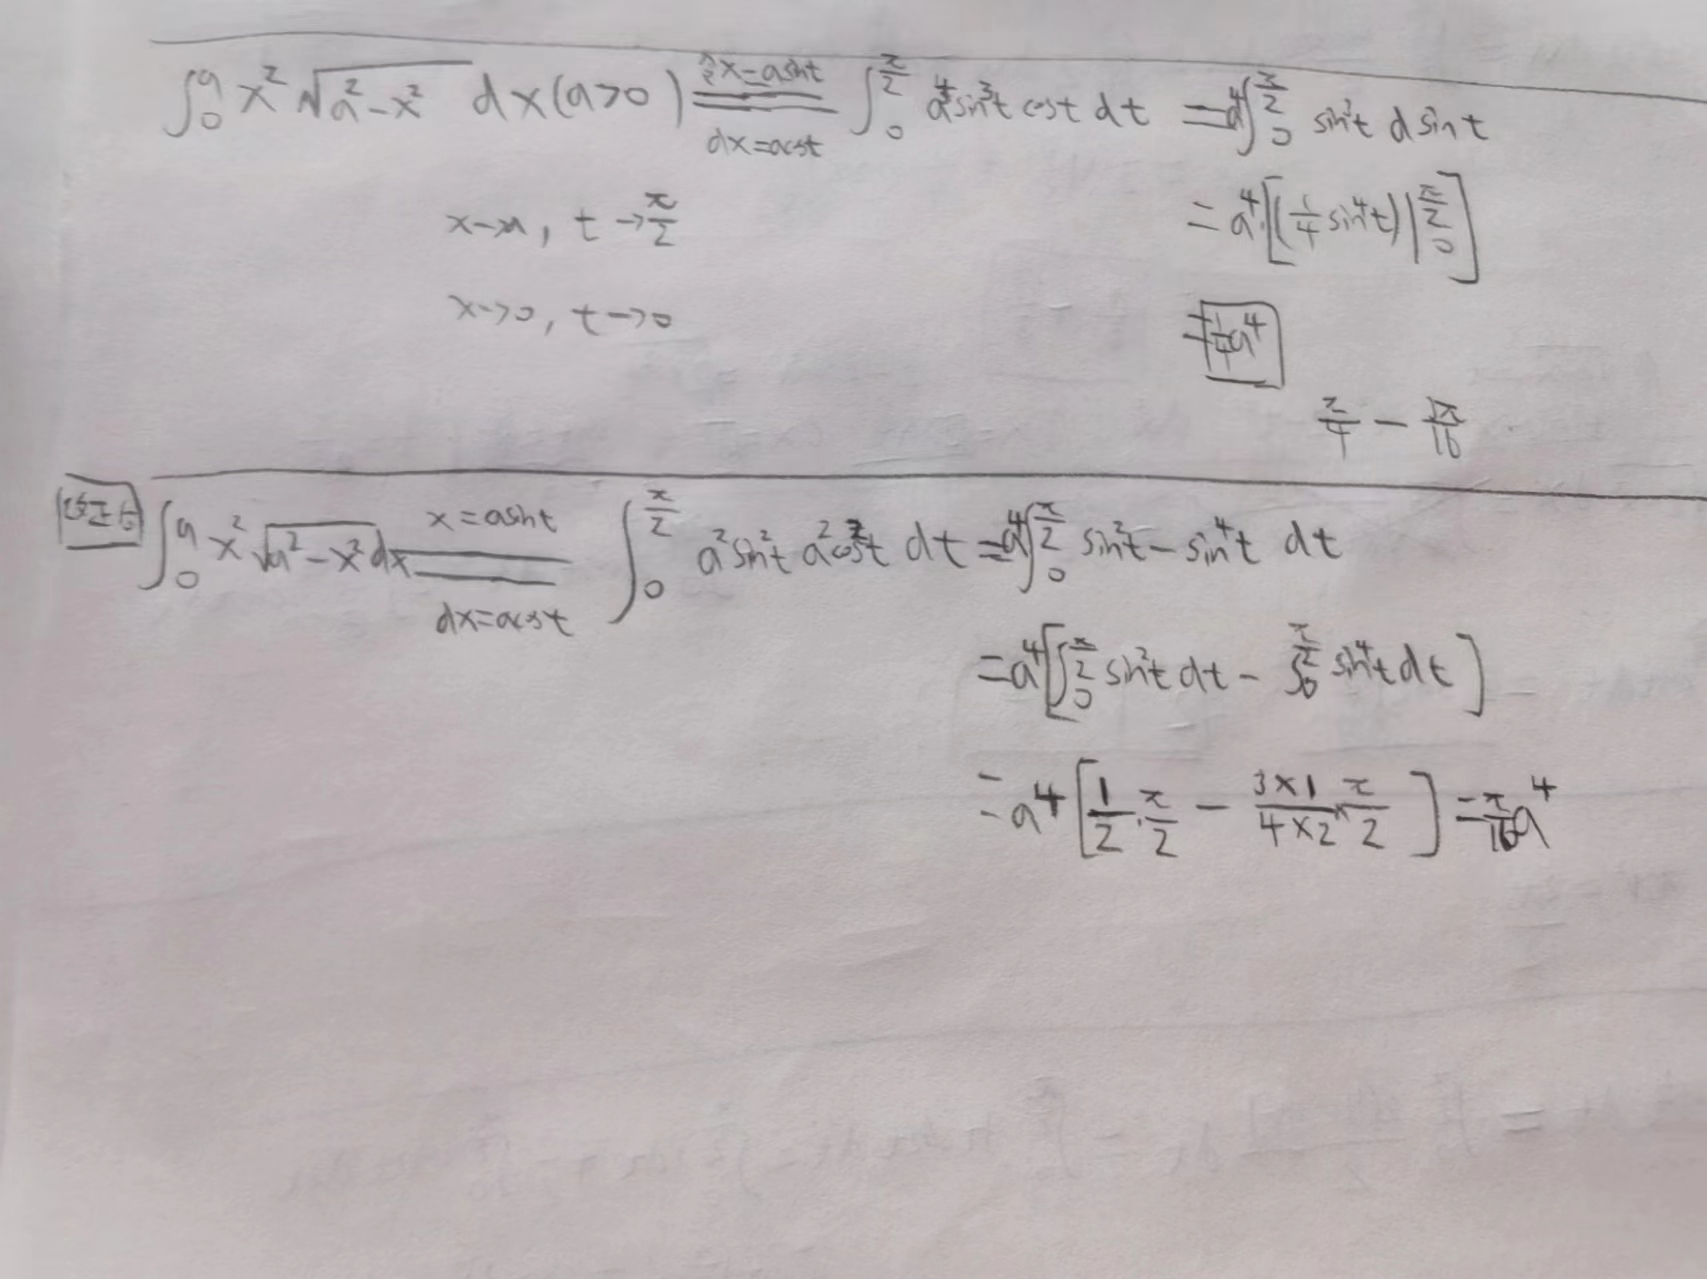 ∫₀^a x²√(a²-x²) dx (a>0) ══(令x=asint, dx=acost)══ ∫₀^{π/2} a⁴sin³t cost dt = a⁴∫₀^{π/2} sin³t dsint
= a⁴·[(1/4 sin⁴t)|₀^{π/2}]
x→a, t→π/2
x→0, t→0
= 1/4 a⁴
π/4 - 3π/16
改正后 ∫₀^a x²√(a²-x²) dx ══(x=asint, dx=acost)══ ∫₀^{π/2} a²sin²t a²cos²t dt = a⁴∫₀^{π/2} sin²t - sin⁴t dt
= a⁴[∫₀^{π/2} sin²t dt - ∫₀^{π/2} sin⁴t dt]
= a⁴[1/2 · π/2 - (3×1)/(4×2) × π/2] = π/16 a⁴